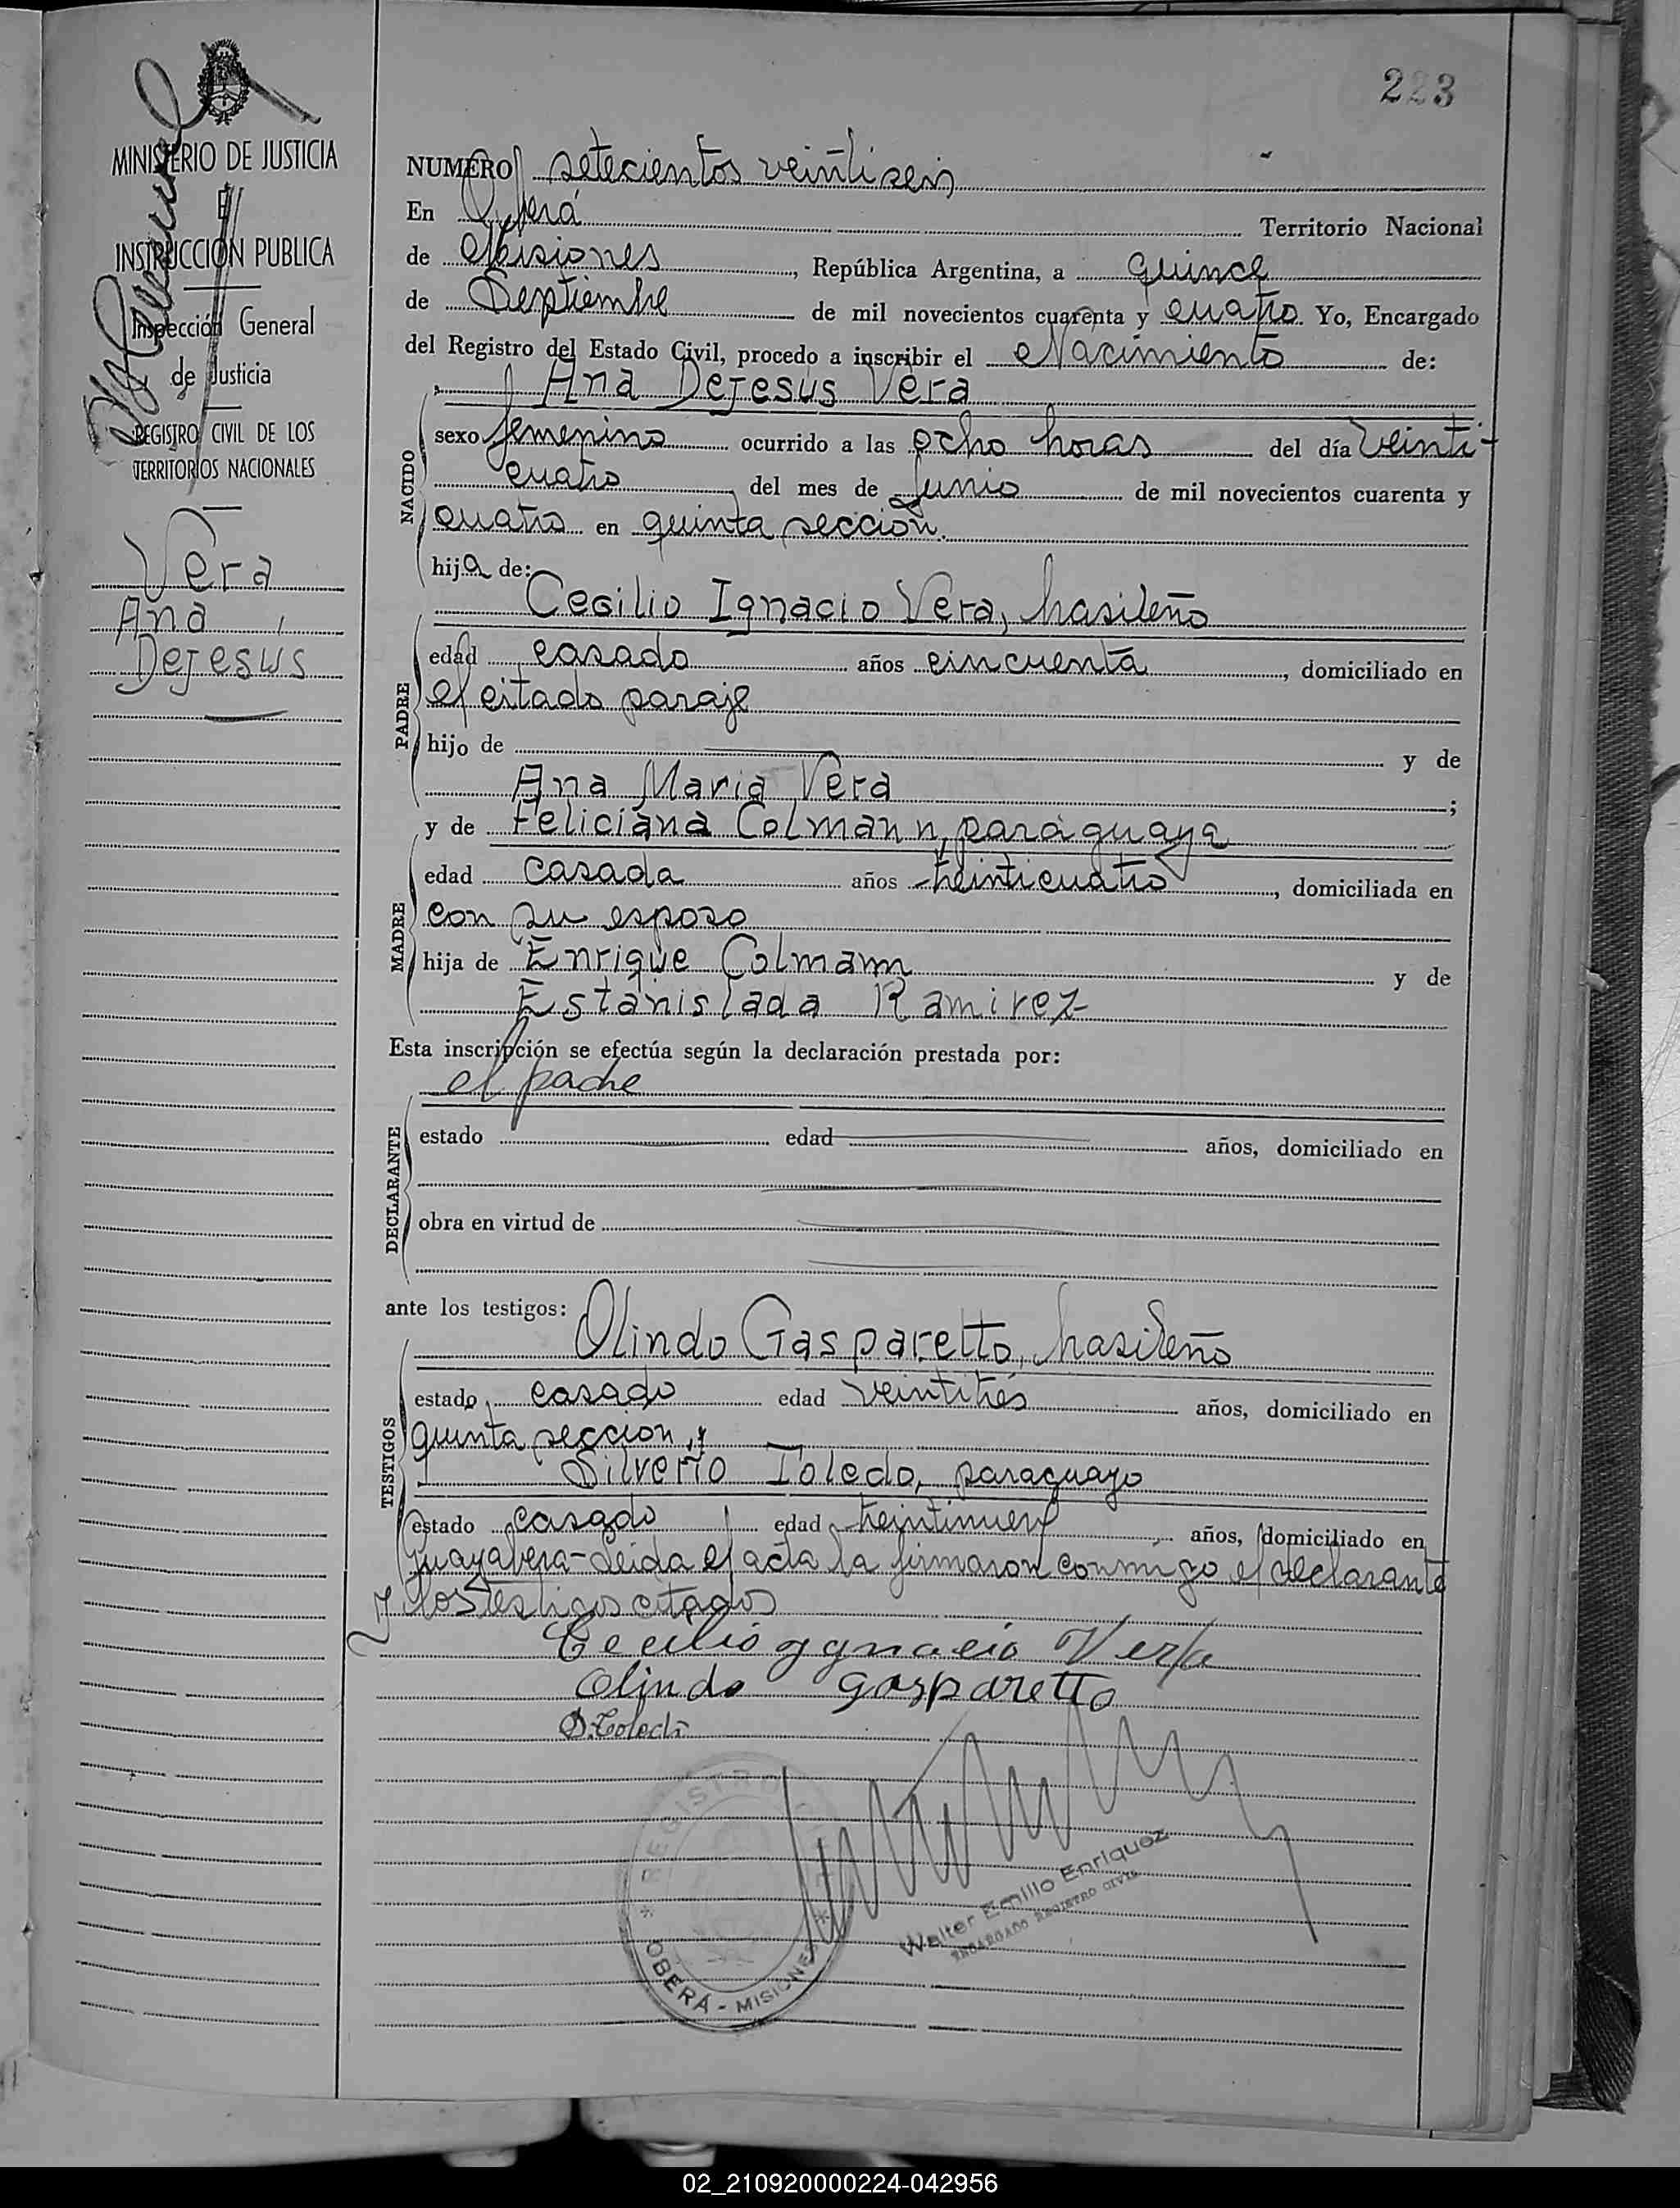 223
MINISTERIO DE JUSTICIA
E
INSTRUCCION PUBLICA
Inspección General
de Justicia
REGISTRO CIVIL DE LOS
TERRITORIOS NACIONALES
Vera
Ana
Dejesus
NUMERO setecientos veintiseis
En Oberá Territorio Nacional
de Misiones, República Argentina, a quince
de Septiembre de mil novecientos cuarenta y cuatro. Yo, Encargado
del Registro del Estado Civil, procedo a inscribir el Nacimiento de:
Ana Dejesus Vera
NACIDO
sexo femenino ocurrido a las ocho horas del día veinti-
cuatro del mes de Junio de mil novecientos cuarenta y
cuatro en quinta sección.
hija de:
Cecilio Ignacio Vera, brasileño
PADRE
edad casado años cincuenta, domiciliado en
el citado paraje
hijo de y de
Ana Maria Vera;
y de Feliciana Colmann, paraguaya
MADRE
edad casada años treinticuatro, domiciliada en
con su esposo
hija de Enrique Colmann y de
Estanislada Ramirez
Esta inscripción se efectúa según la declaración prestada por:
el padre
DECLARANTE
estado edad años, domiciliado en
obra en virtud de
ante los testigos:
Olindo Gasparetto, brasileño
TESTIGOS
estado casado edad veintitrés años, domiciliado en
quinta sección, y
Silverio Toledo, paraguayo
estado casado edad treintinueve años, domiciliado en
Guayabera-Leida el acta la firmaron conmigo el declarante
y los testigos citados
Cecilio ygnacio Vera
Olindo gasparetto
S. Toledo
REGISTRO
OBERÁ - MISIONES
Walter Emilio Enriquez
ENCARGADO REGISTRO CIVIL
02_210920000224-042956